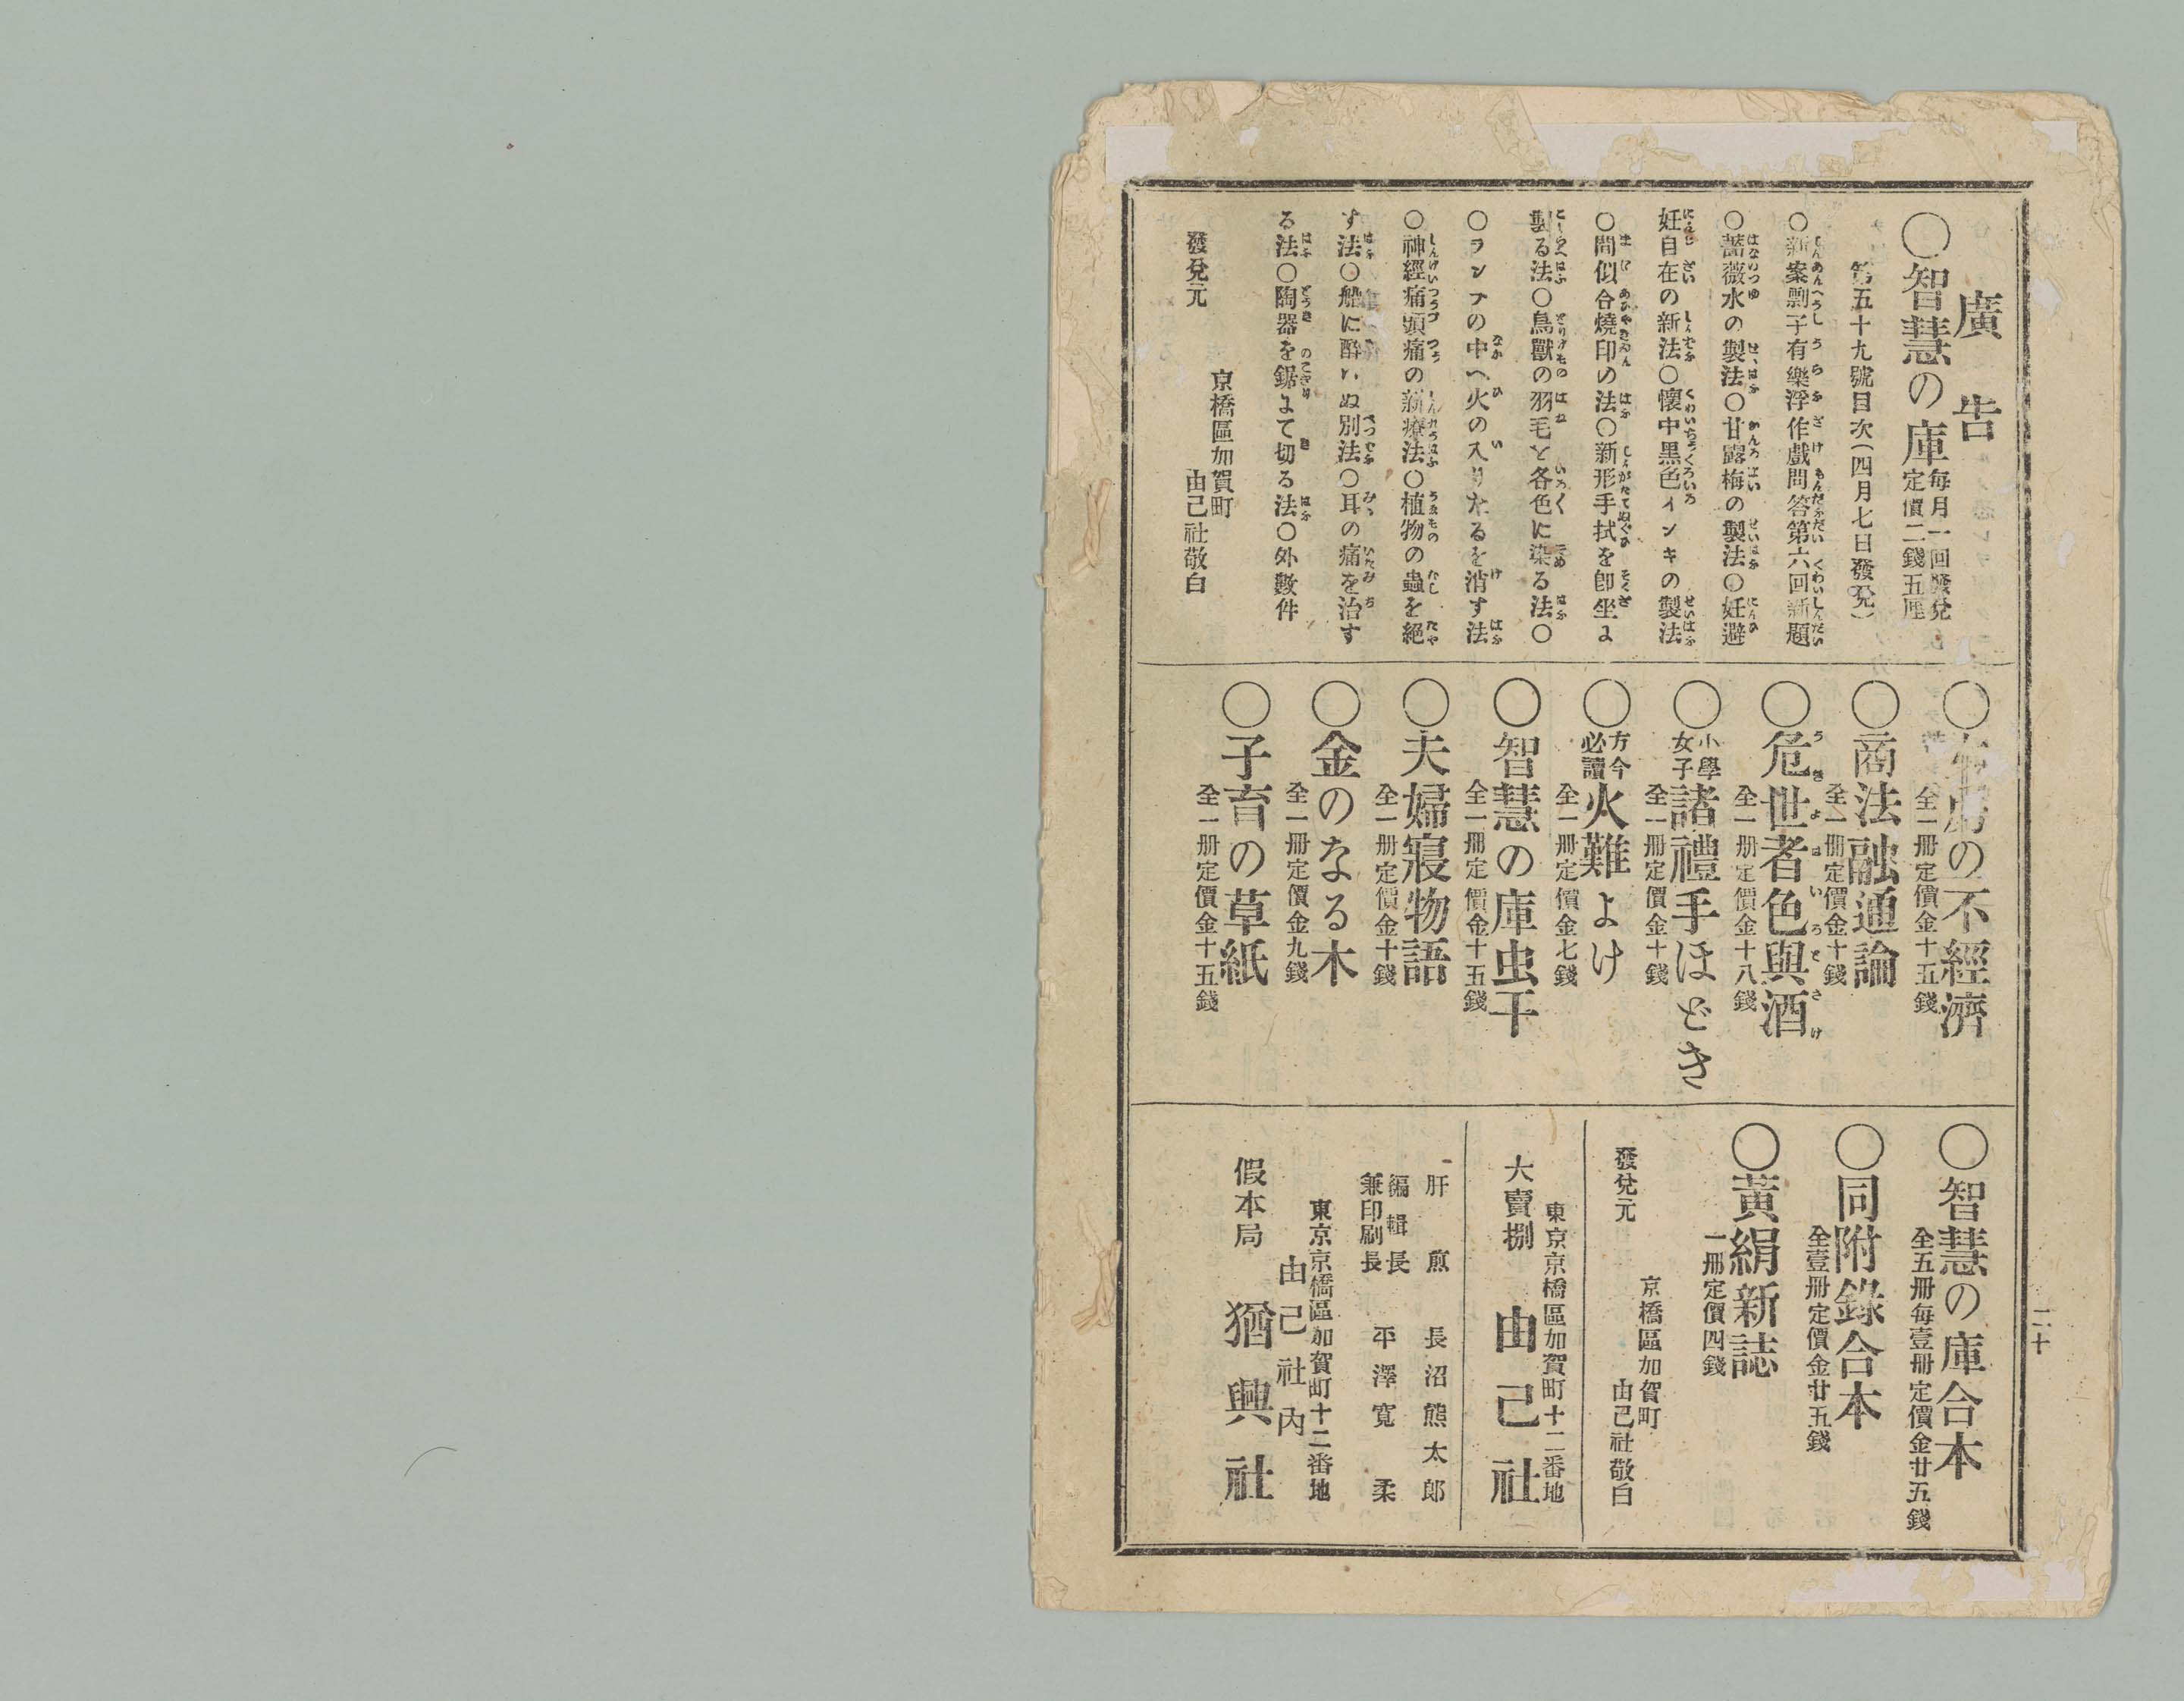 廣告
〇智慧の庫 毎月一回發兌 定價二錢五厘
第五十九號目次(四月七日發兌)
〇新案剽子有樂浮作戲問答第六回新題
〇薔薇水の製法〇甘露梅の製法〇妊避
妊自在の新法〇懷中黒色インキの製法
〇間似合燒印の法〇新形手拭を卽坐よ
製る法〇鳥獸の羽毛を各色に染る法〇
〇ランプの中へ火の入りたるを消す法
〇神經痛頭痛の新療法〇植物の蟲を絕
す法〇船に醉ハぬ別法〇耳の痛を治す
る法〇陶器を鋸よて切る法〇外數件
發兌元
京橋區加賀町
由己社敬白
の不經濟
全一冊定價金十五錢
〇商法融通論
全一冊定價金十錢
〇危世者色與酒
全一冊定價金十八錢
〇小學女子諸禮手ほどき
全一冊定價金十錢
〇方今必讀火難よけ
全一冊定價金七錢
〇智慧の庫虫干
全一冊定價金十五錢
〇夫婦寢物語
全一冊定價金十錢
〇金のなる木
全一冊定價金九錢
〇子育の草紙
全一冊定價金十五錢
〇智慧の庫合本
全五冊毎壹冊定價金廿五錢
〇同附錄合本
全壹冊定價金廿五錢
〇黃絹新誌
一冊定價四錢
發兌元
京橋區加賀町
由己社敬白
東京京橋區加賀町十二番地
大賣捌 由己社
肝煎 長沼熊太郎
編輯長兼印刷長 平澤寬柔
東京京橋區加賀町十二番地
由己社內
假本局 猶興社
二十